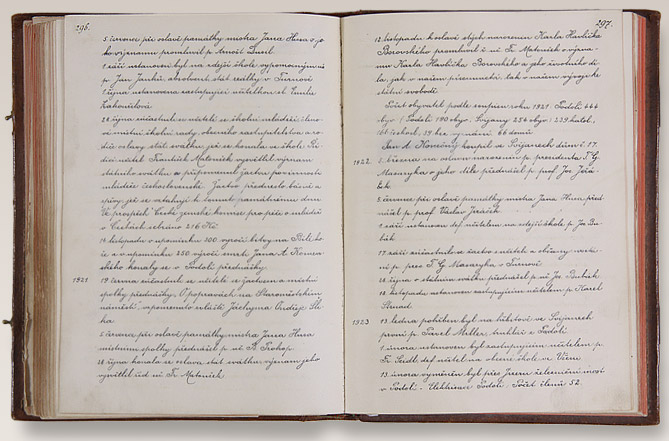 296.
5. července při oslavě památky mistra Jana Husa o je-
ho významu promluvil p. Arnošt
1. září ustanoven byl na zdejší škole výpomocným uč.
p. Jan Janků, absolvent stát. české v Turnově
října ustanovena zastupující učitelkou sl. Emilie
28. října zúčastnil se učitelé se školní mládeží, člen-
ové místní školní rady, obecního zastupitelstva a ro-
diče oslavy stát. svátku, jež se konala ve škole. Ří-
dící učitel František Matoušek vysvětlil význam
státního svátku a připomenul žactvu povinnosti
mládeže československé. Žactvo předneslo básně a
zpěvy, jež se vztahují k tomuto památnému dnu.
Ve prospěch České zemské komise pro péči o mládež
v Čechách sebráno 216 Kč
14. listopadu v upomínku 300 výročí bitvy na Bílé ho-
ře a v upomínku 250 výročí smrti Jana A. Komen-
ského konaly se v Podolí přednášky.
1921 19. června zúčastnili se učitelé se žactvem a místní
spolky přednášky „O popravách na Staroměstském
náměstí", vzpomenuto Jáchyma Ondřeje Šli-
ka.
5. července při oslavě památky mistra Jana Husa
místními spolky, přednášel p. uč. Prokop.
28. října konala se oslava stát. svátku, význam jeho
vysvětlil říd. uč. Fr. Matoušek.
297.
12. listopadu k oslavě 100 letých narozenin Karla Havlíčka
Borovského promluvil ř. uč. Fr. Matoušek o význa-
mu Karla Havlíčka Borovského a jeho životního dí-
la, jak v našem písemnictví, tak v našem vývoji ke
státní svobodě.
Počet obyvatel podle soupisu roku 1921: Podolí 444
obyv. (Podolí 190 obyv., Svijany 254 obyv.) 239 katol.,
českosl., 39 bez vyznání, 66 domů
Jan A. Konečný koupil ve Svijanech dům č. 17.
1922. 7. března na oslavu narozenin p. presidenta T. G.
Masaryka o jeho díle přednášel p. prof. Jos.
5. července při oslavě památky mistra Jana Husa před-
nášel p. prof. Václav
1. září ustanoven def. učitelem na zdejší škole p. Jos. Bu-
bák
17. září zúčastnilo se žactvo s učiteli a občany uvítá-
ní p. pres. T. G. Masaryka v Turnově
28. října o státním svátku přednášel p. uč. Jos. Bubák
18. listopadu ustanoven zastupujícím učitelem p. Karel
1923 13. ledna pohřben byl na hřbitově ve Svijanech
první p. Pavel Müller, truhlář z Podolí
1. února ustanoven byl zastupujícím učitelem p.
Fr. Seidl, def. učitel na obecné škole ve Všeni
13. února vyměněn byl přes Jizeru železniční most
v Podolí. Elektrisace Podolí. Počet členů 52.